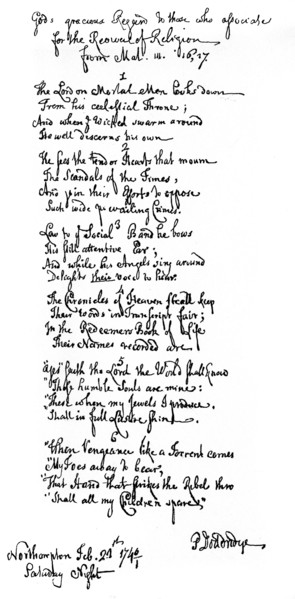 God's gracious Regard to those who associate
for the Revival of Religion
from Mal. III. 16, 17
1
The Lord on Mortal Men looks down
From his celestial Throne;
And when ye Wicked swarm around
He well discerns his own
2
He sees the tender Hearts that mourn
The Scandals of the Times,
And join their Efforts to oppose
Such wide prevailing Crimes.
3
Low to ye Social Band he bows
His still attentive Ear;
And while his Angels sing around
Delights their voice to hear.
4
The Chronicles of Heaven shall keep
Their Words in Transcript fair;
In the Redeemer's Book of Life
Their Names recorded are
5
"Yes" saith the Lord the World shall know
"These humble Souls are mine:
"These when my Jewels I produce.
"Shall in full Lustre shine
6
"When Vengeance like a Torrent comes
"My Foes away to bear,
"That Hand that strikes the Rebel thro
"Shall all my Children spare."
P Doddridge
Northampton Feb. 21th 1740/1
Saturday Night